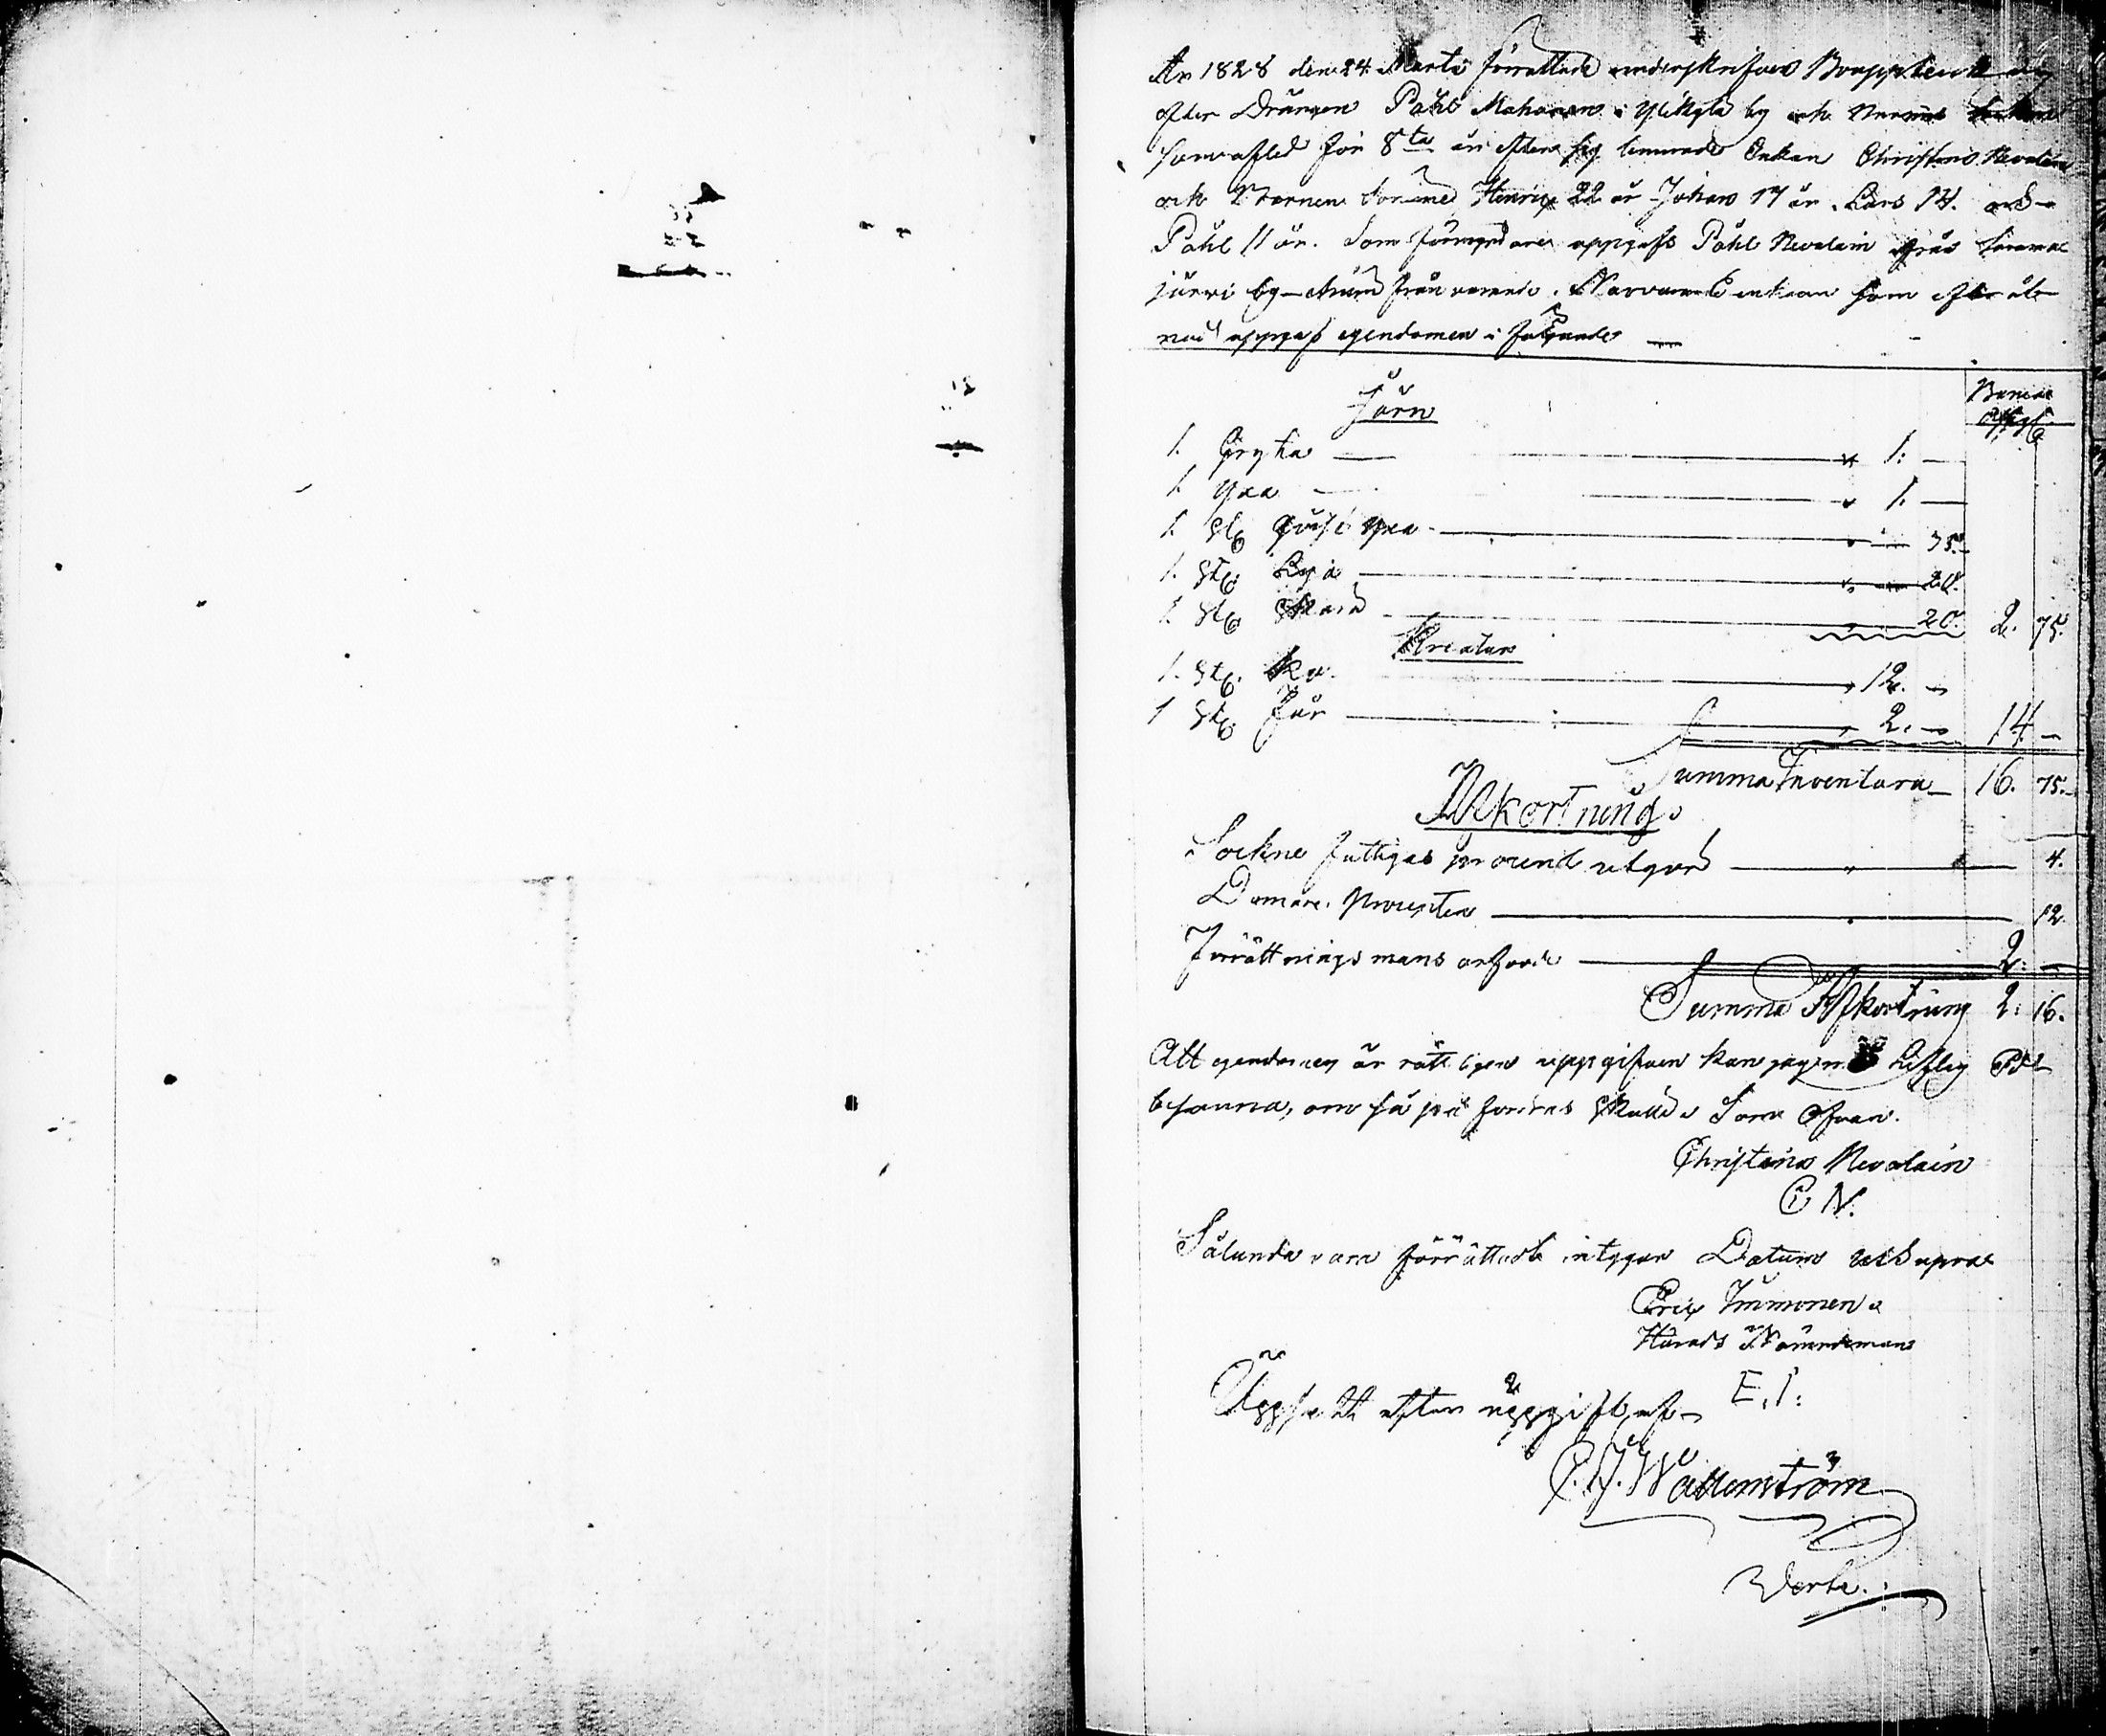 År 1828 den 24 Marti förrättade underskrifven Bouppteckning
efter Drängen Påhl Mahonen i Ylikylä by och Nurmis Sochn
som afled för 8ta år efter sig lemnade Enkan Christina Nevalain
och Barnen Henrix 22 år Johan 17 år. Lars 14. och
Påhl 11 år. Som förmyndare uppgafs Påhl Nevalain från
järvi by Närvarande enkan som efter åter
nad uppgaf egendomen i följande
Järn
Banco
Assign.
1. Gryta — 1: —
1. Yxa — 1. —
1. St. Yxa — 35.
1. St. Lija — 20.
1. St. Skära — 20. 2. 75.
Kreatur
1. St. Ko — 12. —
1 St. Får — 2. — 14. —
Summa Inventara 16. 75.
Afkortning
Sockne fattigas procent utgör — 4.
Domare. Procenten — 12.
Förrättningsmans arfvode — 2: —
Summa Afkortning 2: 16.
Att egendomen är rätteligen uppgifven kan jag med Liflig Ed
besanna, om så på fordras skulle Som Ofvan.
Christina Nevalain
C N.
Sålunda vara förrättadt intygar Datum ut Supra
Eric Immonen
Härads Nämndeman
E. I:
Uppsatt efter uppgift af
C. J. Wattenström